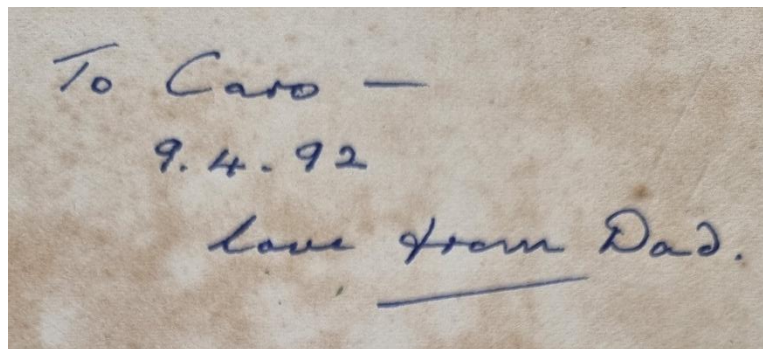 To Caro —
9.4.92
love from Dad.